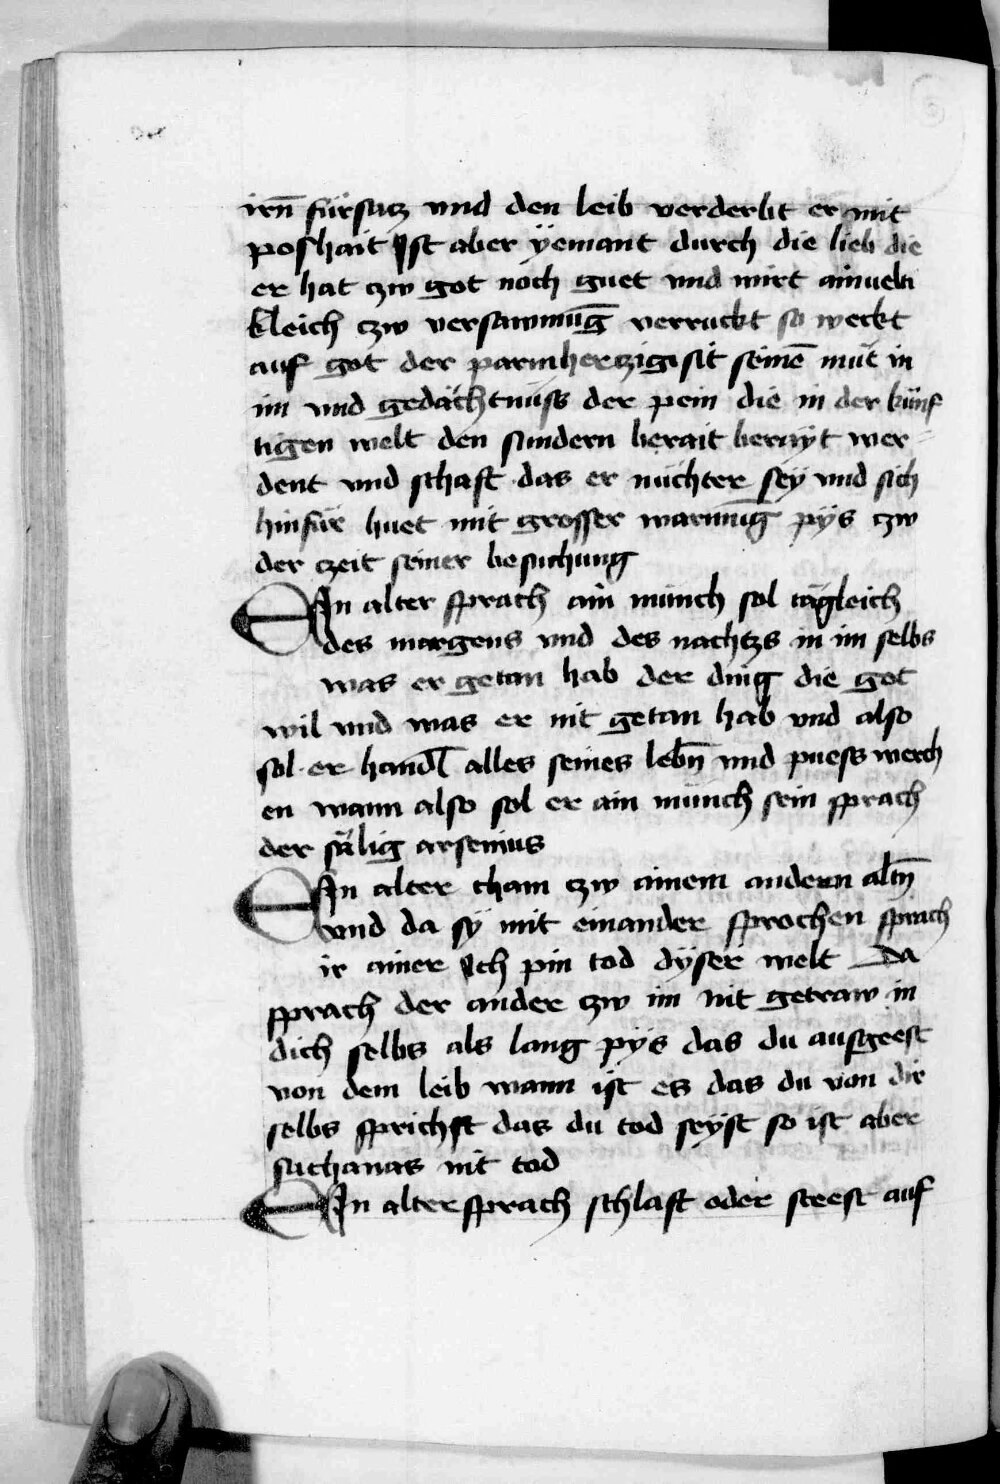 irn̄ fürsatz vnd den leib verderbt er mit
poshait Ist aber yemant durch die lieb die
er hat czw got noch guet vnd wirt
kleich czw versawmūg verruckt so weckt
auf got der parmherczig sit seinē müt in
im vnd gedächtnüss der pein die in der künf
tigen welt den sundern berait berayt wer
dent vnd schaft das er nüchter sey vnd sich
hinfür huet mit grosser warnūg pys czw
der czeit seiner besuchung
EIn alter sprach ain münch sol tägleich
des margens vnd des nachtzs in im selbs
was er getan hab der ding die got
wil vnd was er nit getan hab vnd also
sol er handl alles seines lebn̄ vnd puess werch
en wann also sol er ain münch sein sprach
der sälig arsenius
EIn alter cham czw ainem andern altn̄
vnd da sy mit einander sprochen sprach
ir ainer Ich pin tod dyser welt Da
sprach der ander czw im nit getraw in
dich selbs als lang pys das du ausgeest
von dem leib wann ist es das du von dir
selbs sprichst das du tod seyst so ist aber
sathanas nit tod
EIn alter sprach schlafst oder steest auf